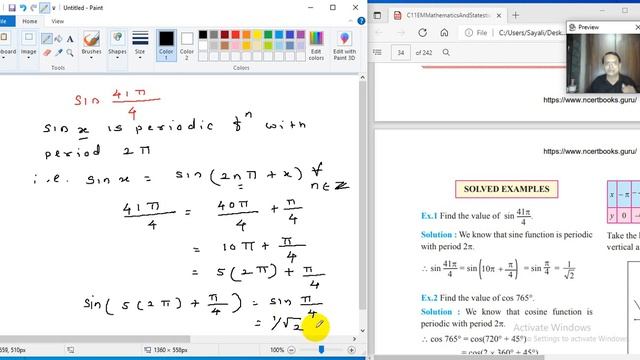 Untitled - Paint
Brushes
Size
Color 1
Color 2
Colors
Edit colors
Edit with Paint 3D
sin 41π/4
sin x is periodic fⁿ with
period 2π
i.e. sin x = sin (2nπ + x) ∀ n ∈ Z
41π/4 = 40π/4 + π/4
= 10π + π/4
= 5(2π) + π/4
sin(5(2π) + π/4) = sin π/4
= 1/√2
1360 × 558px
100%
C11EMMathematicsAndStatest
File
C:/Users/Sayali/Desk
34 of 242
Preview
https://www.ncertbooks.guru/
https://www.ncertbooks.guru/
SOLVED EXAMPLES
Ex.1 Find the value of sin 41π/4.
Solution : We know that sine function is periodic
with period 2π.
∴ sin 41π/4 = sin (10π + π/4) = sin π/4 = 1/√2
Ex.2 Find the value of cos 765°.
Solution : We know that cosine function is
periodic with period 2π.
∴ cos 765° = cos(720° + 45°)
= cos(2 × 360° + 45°)
x -π
y 0
Take the
vertical a
Activate Windows
Go to Settings to activate Windows